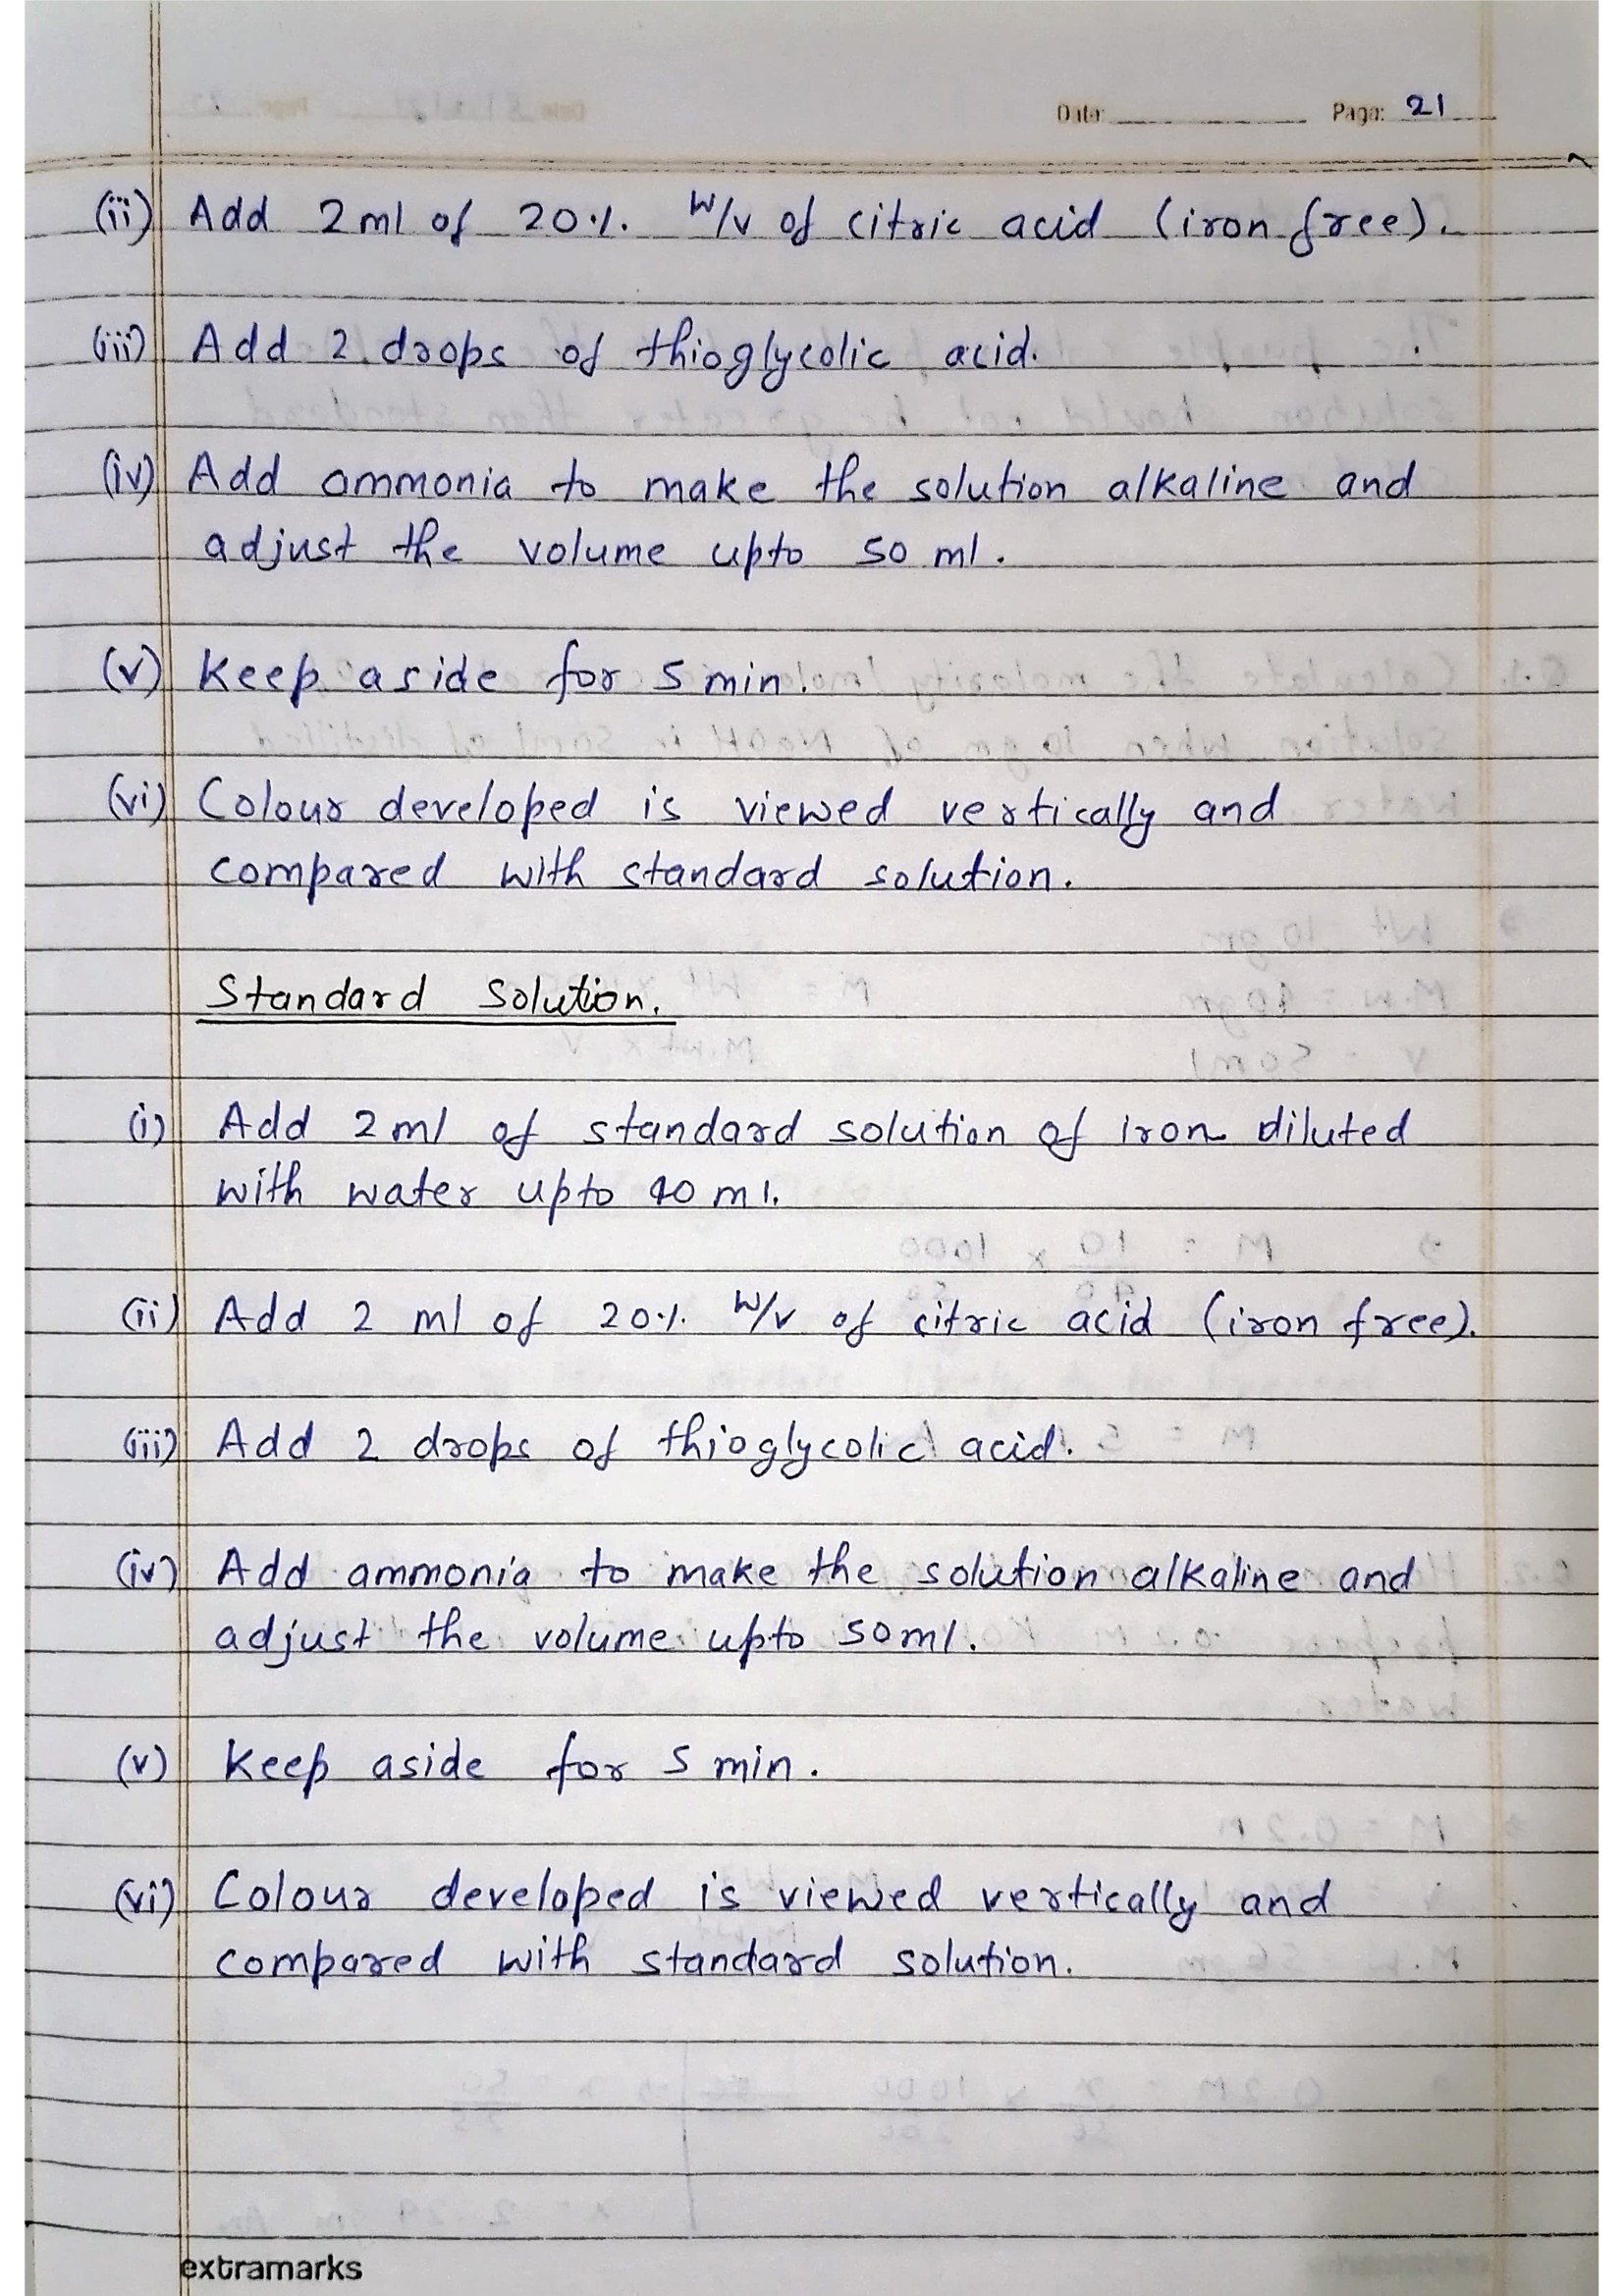 Date: Page: 21
(ii) Add 2 ml of 20% w/v of citric acid (iron free).
(iii) Add 2 drops of thioglycolic acid.
(iv) Add ammonia to make the solution alkaline and
adjust the volume upto 50 ml.
(v) Keep aside for 5 min.
(vi) Colour developed is viewed vertically and
compared with standard solution.
Standard Solution.
(i) Add 2 ml of standard solution of iron diluted
with water upto 40 ml.
(ii) Add 2 ml of 20% w/v of citric acid (iron free).
(iii) Add 2 drops of thioglycolic acid.
(iv) Add ammonia to make the solution alkaline and
adjust the volume upto 50 ml.
(v) Keep aside for 5 min.
(vi) Colour developed is viewed vertically and
compared with standard solution.
extramarks